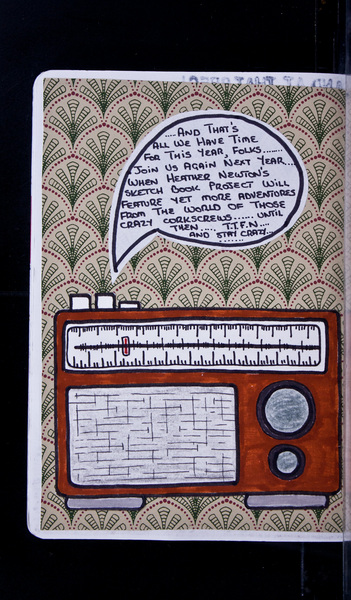 ....And That's
All We Have Time
For This Year, Folks........
Join Us Again Next Year...
When Heather Newton's
Sketch Book Project Will
Feature Yet More Adventures
From The World Of Those
Crazy Corkscrews...... Until
Then..... T.T.F.N....
And Stay Crazy...